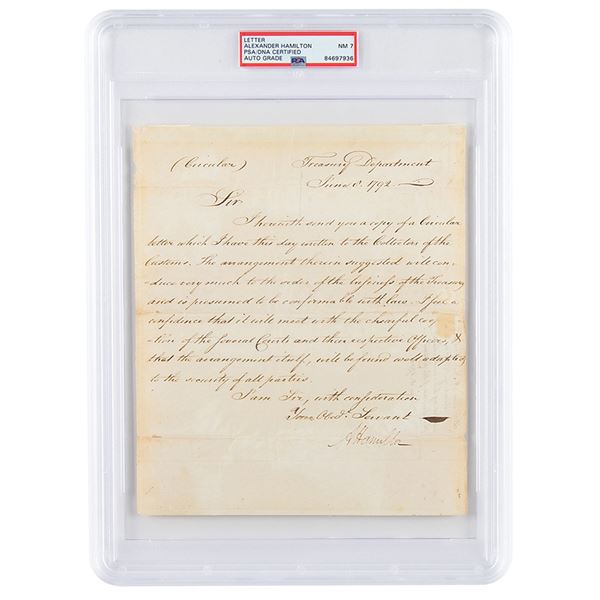 LETTER
ALEXANDER HAMILTON NM 7
PSA/DNA CERTIFIED
AUTO GRADE PSA 84697936
(Circular) Treasury Department
June 1792
Sir
I herewith send you a copy of a Circular
letter which I have this day written to the Collectors of the
Customs. The arrangement therein suggested will con-
duce very much to the order of the business of the Treasury
and is presumed to be conformable with law. I feel a
confidence that it will meet with the chearful
of the several Courts and their respective Officers, &
that the arrangement itself, will be found well adapted
to the security of all parties.
I am Sir, with consideration
Your Obedt. Servant
A Hamilton